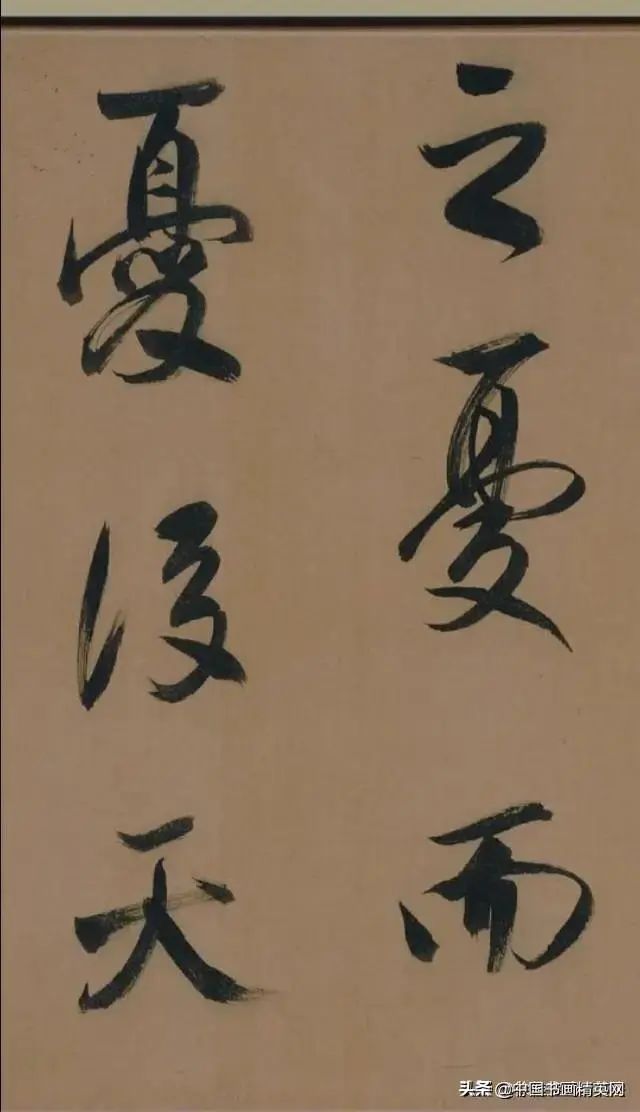 之憂而
憂後天
头条 @中国书画精英网